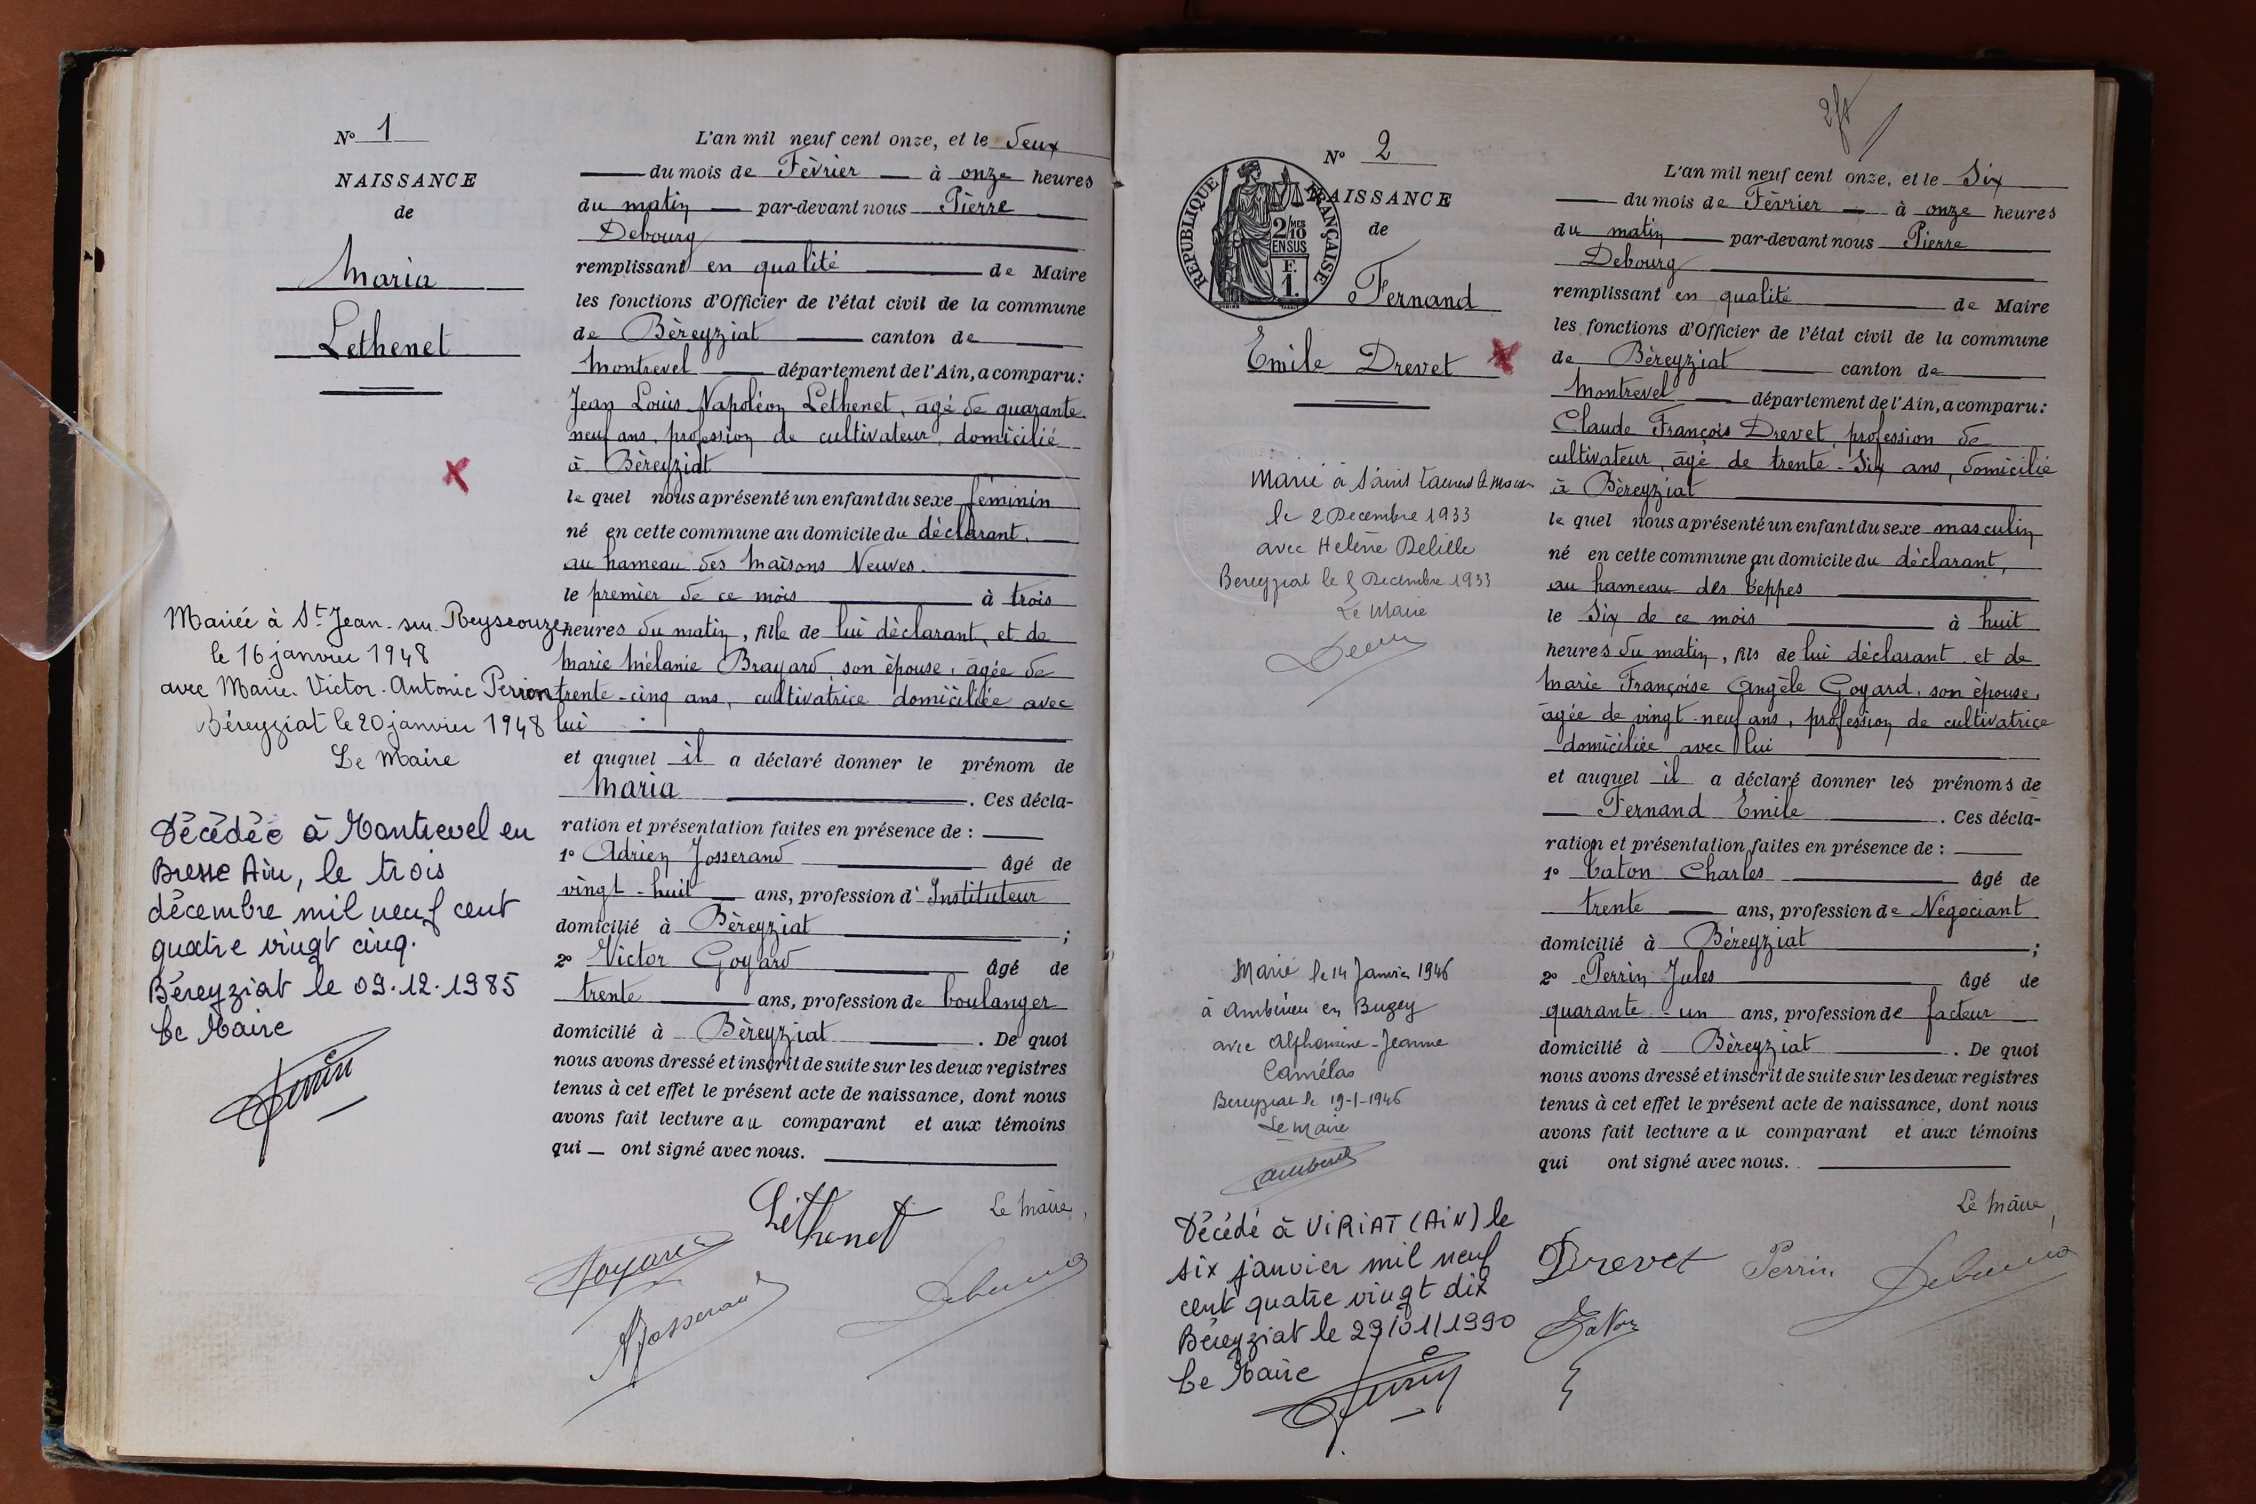 N° 1
NAISSANCE
de
Maria
Lethenet
Mariée à St Jean-sur-Reyssouze
le 16 janvier 1948
avec Marie-Victor-Antonie Perron
Béreyziat le 20 janvier 1948
Le Maire
Décédée à Montrevel en
Bresse Ain, le trois
décembre mil neuf cent
quatre vingt cinq.
Béreyziat le 09.12.1985
Le Maire
L'an mil neuf cent onze, et le deux
du mois de Février à onze heures
du matin par-devant nous Pierre
Debourg
remplissant en qualité de Maire
les fonctions d'Officier de l'état civil de la commune
de Béreyziat canton de
Montrevel département de l'Ain, a comparu:
Jean Louis Napoléon Lethenet, âgé de quarante
neuf ans, profession de cultivateur, domicilié
à Béreyziat
le quel nous a présenté un enfant du sexe féminin
né en cette commune au domicile du déclarant,
au hameau des Maisons Neuves.
le premier de ce mois à trois
heures du matin, fille de lui déclarant, et de
Marie Mélanie Brayard son épouse, âgée de
trente-cinq ans, cultivatrice domiciliée avec
lui
et auquel il a déclaré donner le prénom de
Maria . Ces décla-
ration et présentation faites en présence de :
1° Adrien Josserand âgé de
vingt-huit ans, profession d'Instituteur
domicilié à Béreyziat ;
2° Victor Goyard âgé de
trente ans, profession de boulanger
domicilié à Béreyziat . De quoi
nous avons dressé et inscrit de suite sur les deux registres
tenus à cet effet le présent acte de naissance, dont nous
avons fait lecture au comparant et aux témoins
qui ont signé avec nous.
Lethenet
Le Maire,
Goyard
AJosserand
Debourg
N° 2
NAISSANCE
de
REPUBLIQUE FRANÇAISE
2/10 MES
EN SUS
F.
1.
Fernand
Emile Drevet
Marié à Saint Laurent
le 2 Decembre 1933
avec Helène Delille
Bereyziat le 5 Decembre 1933
Le Maire
Marié le 14 Janvier 1946
à Ambérieu en Bugey
avec Alphonsine-Jeanne
Camélas
Bereyziat le 19-1-1946
Le Maire
Décédé à VIRIAT (AIN) le
six janvier mil neuf
cent quatre vingt dix
Béreyziat le 29/01/1990
Le Maire
L'an mil neuf cent onze, et le Six
du mois de Février à onze heures
du matin par-devant nous Pierre
Debourg
remplissant en qualité de Maire
les fonctions d'Officier de l'état civil de la commune
de Béreyziat canton de
Montrevel département de l'Ain, a comparu:
Claude François Drevet, profession de
cultivateur, âgé de trente-Six ans, domicilié
à Béreyziat
le quel nous a présenté un enfant du sexe masculin
né en cette commune au domicile du déclarant,
au hameau des Teppes
le Six de ce mois à huit
heures du matin, fils de lui déclarant et de
Marie Françoise Angèle Goyard, son épouse,
âgée de vingt-neuf ans, profession de cultivatrice
domiciliée avec lui
et auquel il a déclaré donner les prénoms de
Fernand Emile . Ces décla-
ration et présentation faites en présence de :
1° Taton Charles âgé de
trente ans, profession de Négociant
domicilié à Béreyziat ;
2° Perrin Jules âgé de
quarante-un ans, profession de facteur
domicilié à Béreyziat . De quoi
nous avons dressé et inscrit de suite sur les deux registres
tenus à cet effet le présent acte de naissance, dont nous
avons fait lecture au comparant et aux témoins
qui ont signé avec nous.
Le Maire,
Drevet Perrin Debourg
Taton